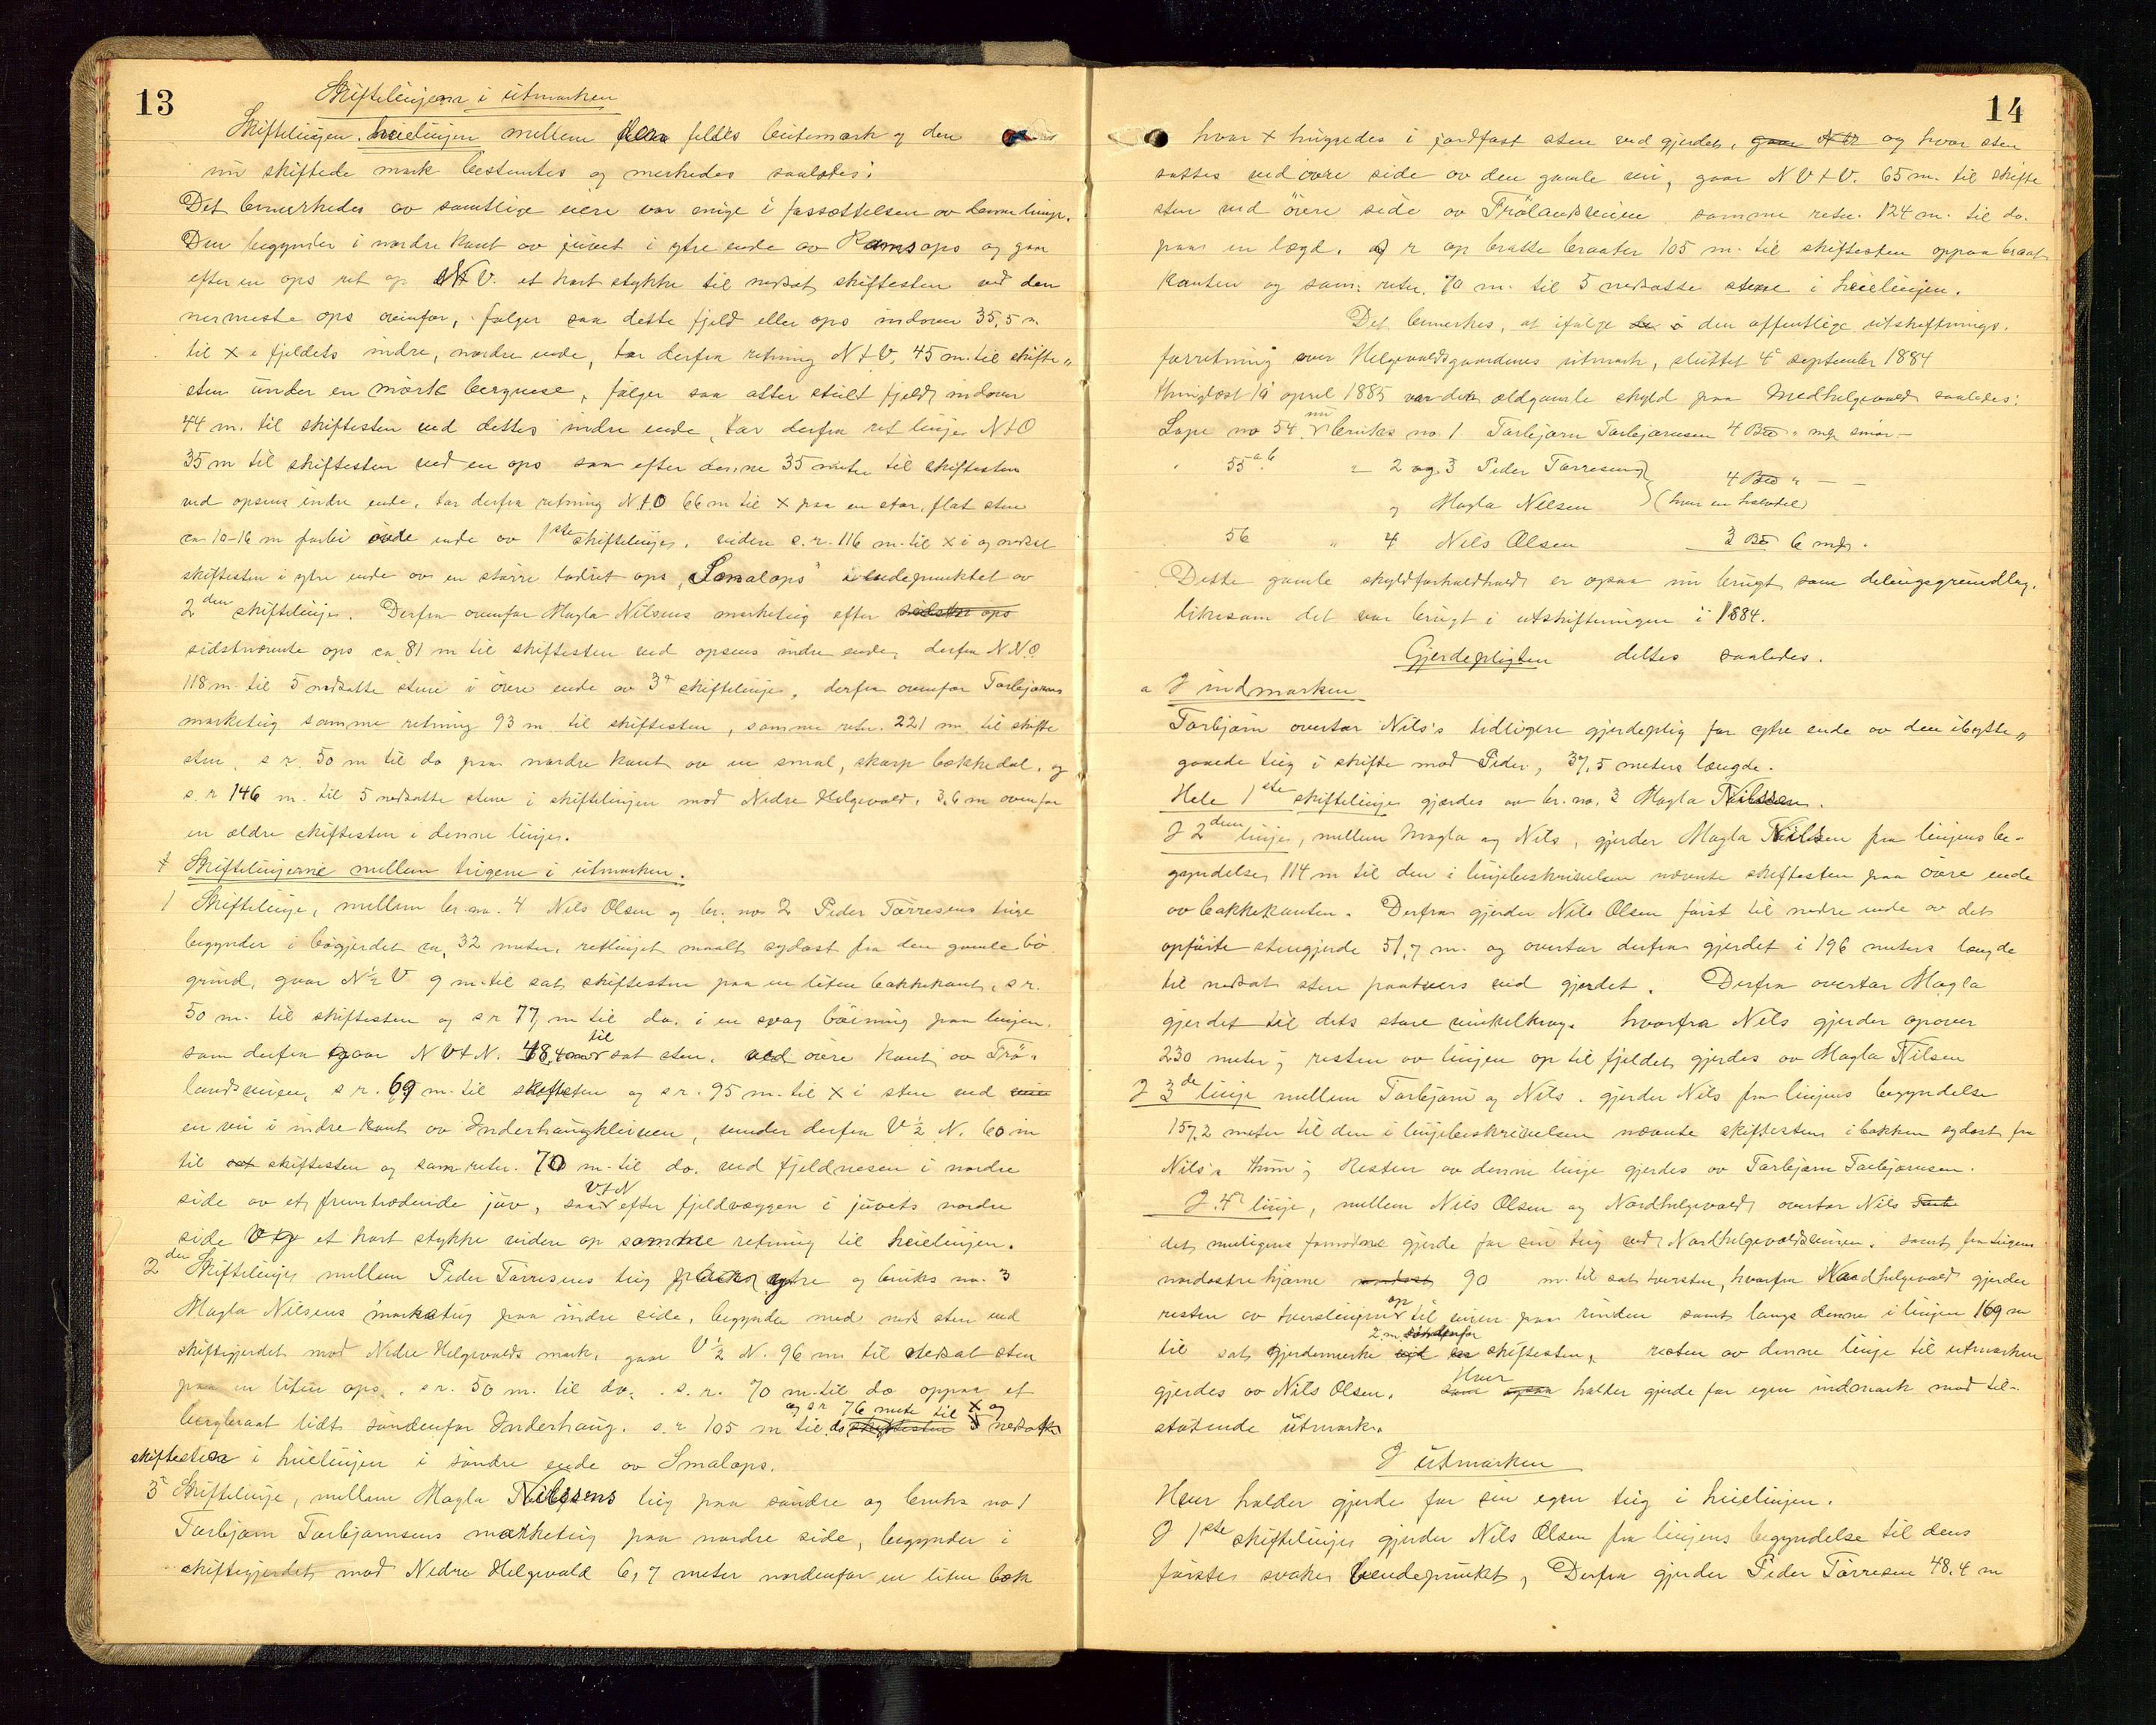 13
Skiftelinjerne i utmarken
Skiftelinjen, heielinjen mellem felles beitemark og den
nu skiftede mark bestemtes og merkedes saaledes:
Det bemerkedes av samtlige eiere var enige i fassættelsen av denne linje.
Den begynder i nordre kant av juvet i ytre ende av Ramsops og gaar
efter en ops ret op et kort stykke til nedsat skiftesten ved den
nermeste ops ovenfor, følger saa dette fjeld eller ops indover 35,5 m
til x i fjeldets indre, nordre ende, tar derfra retning N t V. 45 m. til skifte„
sten under en mørk bergnese, følger saa atter steilt fjeld indover
44 m. til skiftesten ved dettes indre ende, tar derfra ret linje N t O
35 m til skiftesten ved en ops saa efter denne 35 meter til skiftesten
ved opsens indre ende, tar derfra retning N t O 66 m til x paa en stor, flat sten
ca 10-16 m forbi ende av 1ste skiftelinje, videre s. r. 116 m. til x i og nedsat
skiftesten i ytre ende av en større lodret ops „Smalops" i endepunktet av
2den skiftelinje. Derfra ovenfor Magla Nilsens marketeig efter sidste ops
sidstnevnte ops ca 81 m til skiftesten ved opsens indre ende, derfra N.N.O.
118 m. til 5 nedsatte stene i övre ende av 3d skiftelinje, derfra ovenfor Torbjørns
marketeig samme retning 93 m. til skiftesten, samme retn. 221 m. til skifte
sten, s r. 50 m til do paa nordre kant av en smal, skarp bækkedal, og
s. r 146 m. til 5 nedsatte stene i skiftelinjen mod Nedre Helgevold, 3,6 m ovenfor
en ældre skiftesten i denne linje.
Skiftelinjerne mellem teigene i utmarken.
1 Skiftelinje, mellem br. no. 4 Nils Olsen og br. no 2 Peder Tørresens teige
begynder i bøgjerdet ca. 32 meter, retlinjet maalt sydost fra den gamle bö
grind, gaar N½V 9 m. til sat skiftesten paa en liten bakkekant, s r.
50 m. til skiftesten og s r 77, m til do. i en svag böining paa linjen,
som derfra gaar N V t N. 48,4 m til sat sten, ved övre kant av Trö-
landsveien, s r. 69 m. til skiftesten og s r. 95 m. til x i sten ved
en vei i indre kant av Inderhaugkleiven, vender derfra V ½ N. 60 m
til sat skiftesten og sam retn. 70 m. til do. ved fjeldnesen i nordre
side av et fremtrædende juv, saa V.t.N efter fjeldvæggen i juvets nordre
side og et kort stykke videre op samme retning til heielinjen.
2den Skiftelinje mellem Peder Tørresens teig paa ytre og bruks no. 3
Magla Nilsens marketeig paa indre side, begynder med neds. sten ved
skiftegjerdet mod Nedre Helgevolds mark, gaar V ½ N. 96 m til nedsat sten
paa en liten ops, s r. 50 m. til do, s. r. 70 m. til do oppaa et
bergbrant lidt søndenfor Inderhaug. s. r 105 m til do skiftesten og s r 76 mete til x og 5 nedsatte
skiftestener i heielinjen i søndre ende av Smalops.
3d Skiftelinje, mellem Magla Nilsens teig paa søndre og bruks no 1
Torbjørn Torbjørnsens marketeig paa nordre side, begynder i
skiftegjerdet mod Nedre Helgevold 6,7 meter nordenfor en liten bæk
14
hvor x huggedes i jordfast sten ved gjerdet, og hvor sten
sattes ved övre side av den gamle vei, gaar N V t V. 65 m. til skifte
sten ved övre side av Trölandsveien samme retn. 124 m. til do.
paa en lægd, s r op bratte braater 105 m. til skiftesten oppaa braat
kanten og sam. retn. 70 m. til 5 nedsatte stene i heielinjen.
Det bemerkes, at ifølge den offentlige utskiftnings-
forretning over Helgevoldsgaardenes utmark, sluttet 4d september 1884
thinglæst 1d april 1885 var den ældgamle skyld paa Medhelgevold saaledes:
Løpe no 54, nu bruks no. 1 Torbjørn Torbjørnsen 4 „ mrk smør —
55 a b „ 2 og 3 Peder Tørresen
og Magla Nilsen (hver en halvdel) 4 „ — —
56 „ 4 Nils Olsen 3 6 mrk.
Dette gamle skyldforhold er ogsaa nu brugt som delingsgrundlag,
likesom det var brugt i utskiftningen i 1884.
Gjerdepligten deltes saaledes.
a I indmarken
Torbjørn overtar Nils's tidligere gjerdeplig for ytre ende av den ibytte„
gaaede teig i skifte mod Peder, 37,5 meters længde.
Hele 1ste skiftelinje gjærdes av br. no. 3 Magla Nilsen.
I 2den linje, mellem Magla og Nils, gjerder Magla Nilsen fra linjens be-
gyndelse 114 m til den i linjebeskrivelsen nævnte skiftesten paa övre ende
av bakkekanten. Derfra gjerder Nils Olsen først til nedre ende av det
opførte stengjerde 51,7 m. og overtar derfra gjerdet i 196 meters længde
til nedsat sten paatvers ved gjerdet. Derfra overtar Magla
gjerdet til dets store vinkelkrog, hvorfra Nils gjerder opover
230 meter; resten av linjen op til fjeldet gjerdes av Magla Nilsen
I 3de linje mellem Torbjørn og Nils, gjerder Nils fra linjens begyndelse
157,2 meter til den i linjebeskrivelsen nævnte skiftesten i bakken sydost fra
Nils's tun; Resten av denne linje gjerdes av Torbjørn Torbjørnsen.
I 4d linje, mellem Nils Olsen og Nordhelgevold overtar Nils
det muligens fornødne gjerde for sin teig ved Nordhelgevoldsveien, samt fra teigens
nordostre hjørne 90 m. til sat tversten, hvorfra Nordhelgevold gjerder
resten av tverslinjen op til veien paa rinden samt langs denne i linjen 169 m
til sat gjerdemerke 2 m skiftesten, resten av denne linje til utmarken
gjerdes av Nils Olsen. Hver holder gjerde for egen indmark mod til-
støtende utmark.
I utmarken
Hver holder gjerde for sin egen teig i heielinjen.
I 1ste skiftelinje gjerder Nils Olsen fra linjens begyndelse til dens
første svake vendepunkt, Derfra gjerder Peder Tørresen 48,4 m